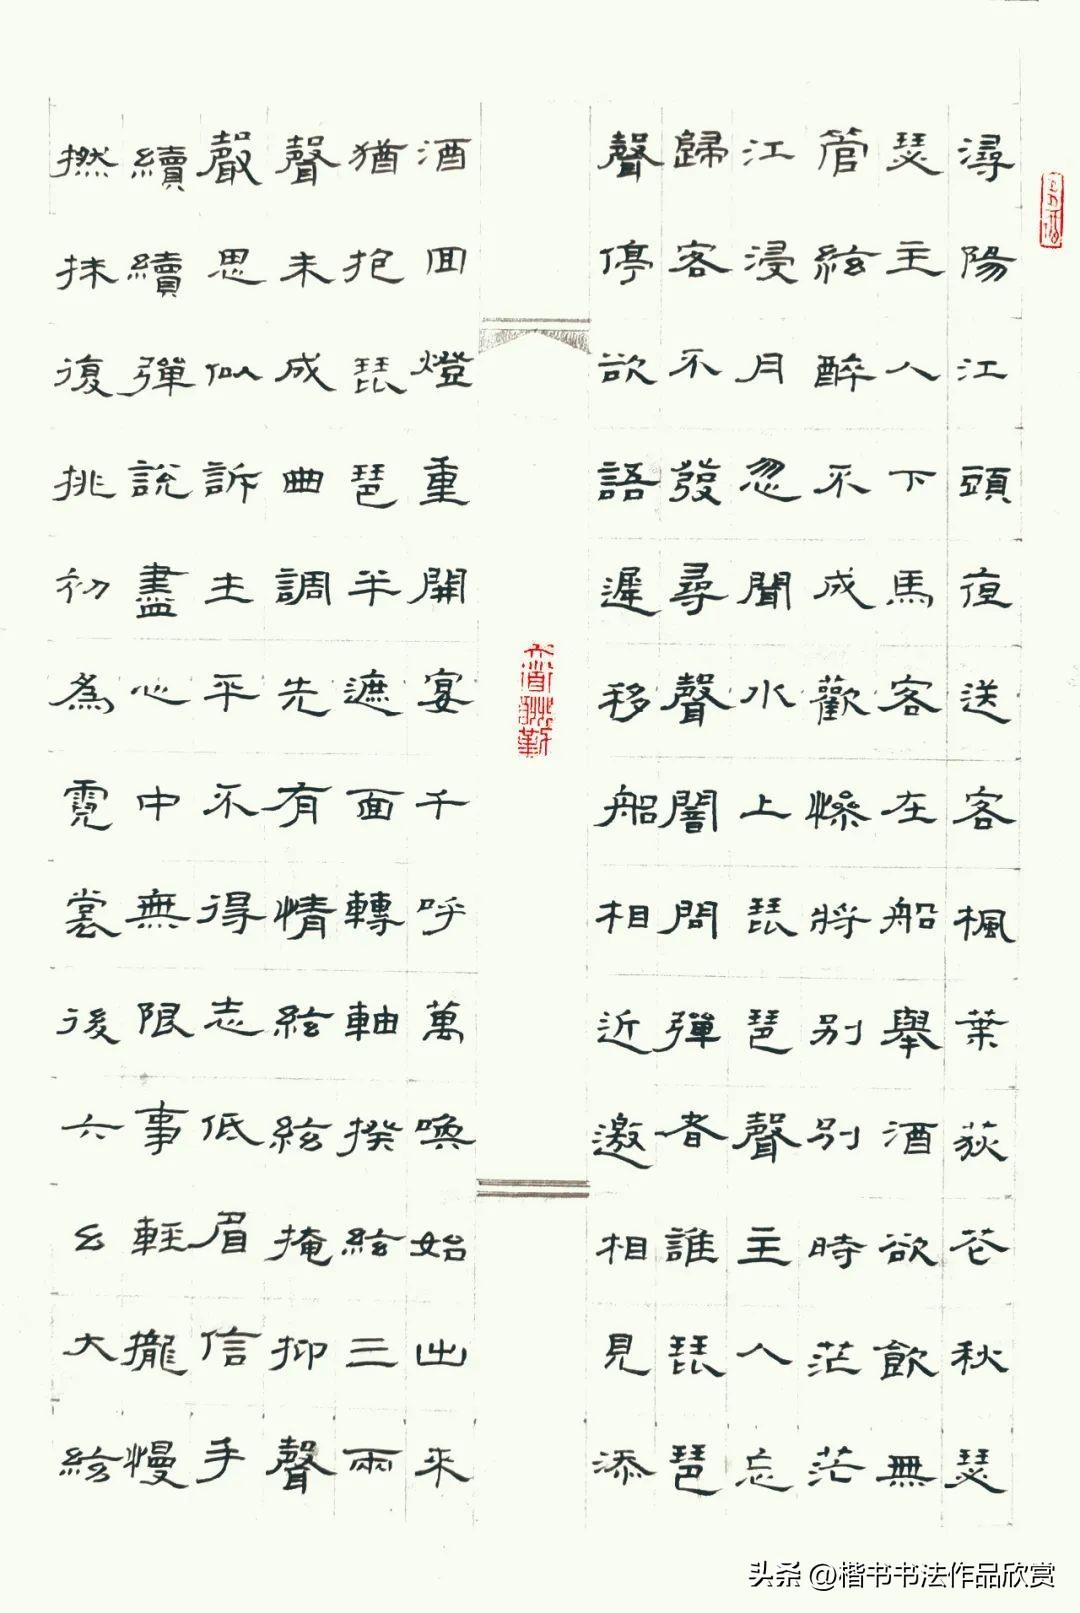 潯陽江頭夜送客楓葉荻花秋瑟
瑟主人下馬客在船舉酒欲飲無
管絃醉不成歡慘將別別時茫茫
江浸月忽聞水上琵琶聲主人忘
歸客不發尋聲闇問彈者誰琵琶
聲停欲語遲移船相近邀相見添
酒回燈重開宴千呼萬喚始出來
猶抱琵琶半遮面轉軸撥絃三兩
聲未成曲調先有情絃絃掩抑聲
聲思似訴生平不得志低眉信手
續續彈說盡心中無限事輕攏慢
撚抹復挑初為霓裳後六幺大絃
天道酬勤
头条 @楷书书法作品欣赏